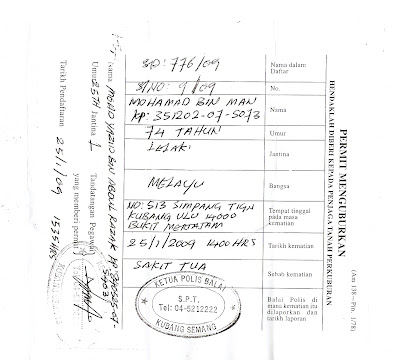 (Am 138—Pin. 1/78)
PERMIT MENGUBURKAN
HENDAKLAH DIBERI KEPADA PENJAGA TANAH PERKUBURAN
Nama dalam Daftar
SP: 776/09
No.
S/NO: 9/09
Nama
MOHAMAD BIN MAN
KP: 351202-07-5073
Umur
74 TAHUN
Jantina
LELAKI
Bangsa
MELAYU
Tempat tinggal pada masa kematian
NO: 513 SIMPANG TIGA
KUBANG ULU 14000
BUKIT MERTAJAM
Tarikh kematian
25/1/2009 1400 HRS
Sebab kematian
SAKIT TUA
Balai Polis di mana kematian itu dilaporkan dan tarikh laporan
KETUA POLIS BALAI
S.P.T.
Tel: 04-5212222
KUBANG SEMANG
Nama MOHD YAZID BIN ABDUL RAZAK KP
Umur 25TH Jantina L Tandatangan Pegawai
yang memberi permit
Tarikh Pendaftaran 25/1/09 1535HRS